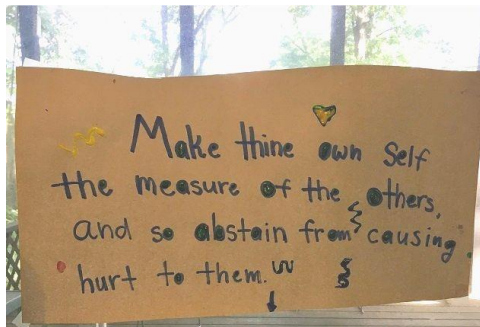 Make thine own Self
the measure of the others,
and so abstain from causing
hurt to them.